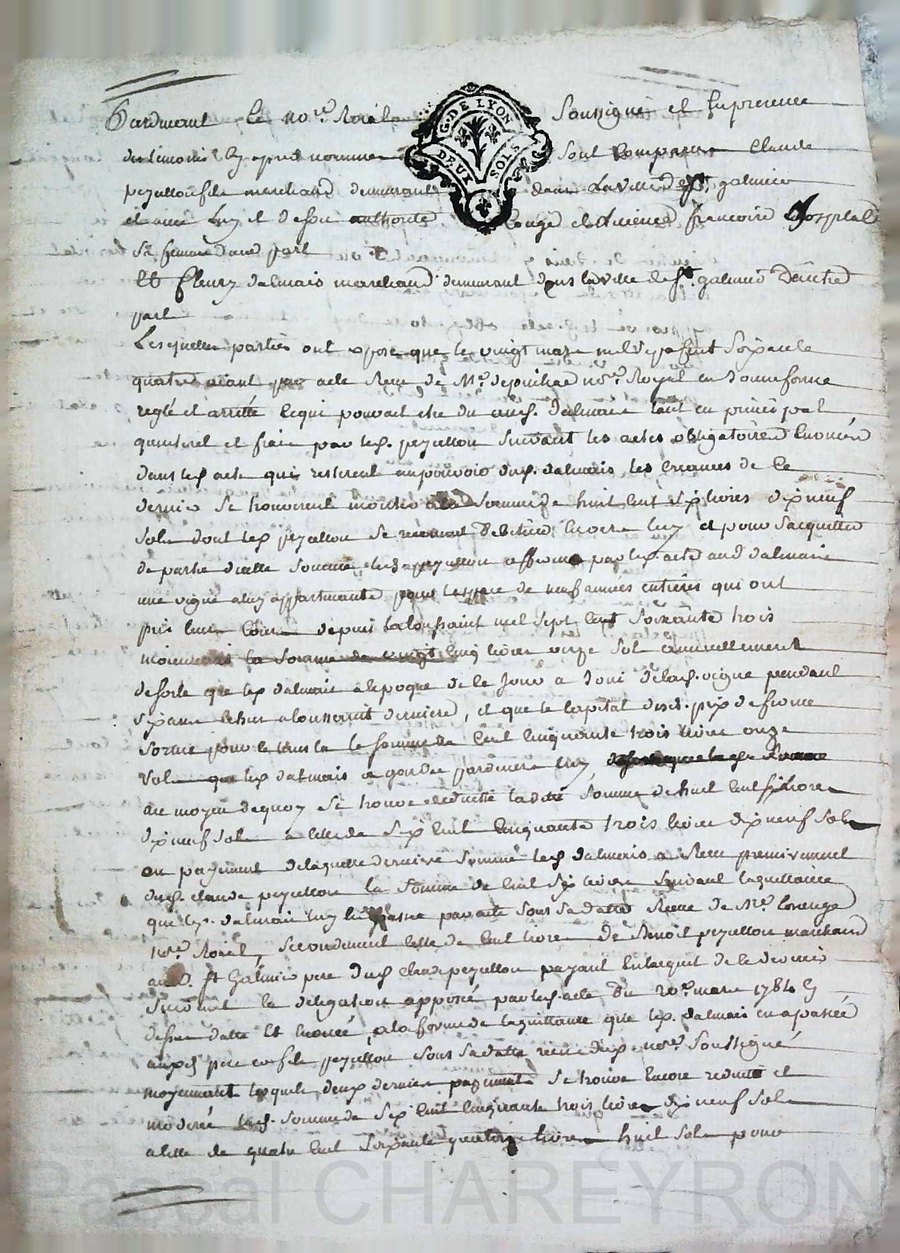 Pardevant le no.re Roial Soussigné et En presence
G. DE LYON
DEUX SOLS
des témoins Cy apres nommés sont Comparus Claude
peyullon fils marchand demeurant dans La ville de St. galmier
et avec Luy et de son authorité Congé et Licence, francoise
Sa femme d'une part
Et fleury dalmais marchand demeurant dans la ville de St. galmier D'autre
part
Lesquelles parties ont exposé que le vingt mars mil sept cent soixante
quatre etant par acte Recu de Me. no.re Royal en bonne forme
reglé et arretté Ce qui pouvait etre du aud. S. dalmais tant en principal
qu'interet et frais par led. S. peyullon suivant les actes obligatoires Enoncés
dans led. acte qui resterent au pouvoir dud. S. dalmais, les Creances de Ce
dernier se trouverent monter a la somme de huit cent six livres dix neuf
sols dont led. S. peyullon se debiteur Encore luy et pour s'acquitter
de partie d'icelle somme led. S. peyullon afferma par led. acte aud. S. dalmais
une vigne a luy appartenante pour l'espace de neuf années entieres qui ont
pris leur Cours depuis la toussaint mil sept Cent soixante trois
moiennant la somme de vingt Cinq livres onze sols annuellement
de sorte que led. S. dalmais a l'epoque de Ce Jour a Joui de lad. vigne pendant
six ans echus a la toussaint derniere, et que le Capital dud. prix de ferme
pour la somme de Cent Cinquante trois livres onze
sols que led. S. dalmais a luy
au moyen de quoy se trouve reduitte ladite somme de huit Cent six livres
dix neuf sols a Celle de six Cent Cinquante trois livres dix neuf sols
en payement de laquelle derniere somme led. S. dalmais a Recu premierement
dud. S. claude peyullon la somme de Cent six livres suivant la quittance
que led. S. dalmais luy En passée par acte sous sa datte Recue de Me.
no.re Roial, secondement Celle de Cent livres de Benoit peyullon marchand
aud. St Galmier pere dud. S. Claude peyullon payant En l'acquit de Ce dernier
suivant la delegation apposée par led. acte du 20e. mars 1784
a la forme de la quittance que led. S. dalmais En a passée
auxd. pere et fils peyullon sous sa datte no.re Soussigné
moyennant lesquels deux derniers payements se trouve Encore reduitte et
moderée lad. somme de six Cent Cinquante trois livres dix neuf sols
a Celle de quatre Cent soixante quatorze livres huit sols pour
Pascal CHAREYRON